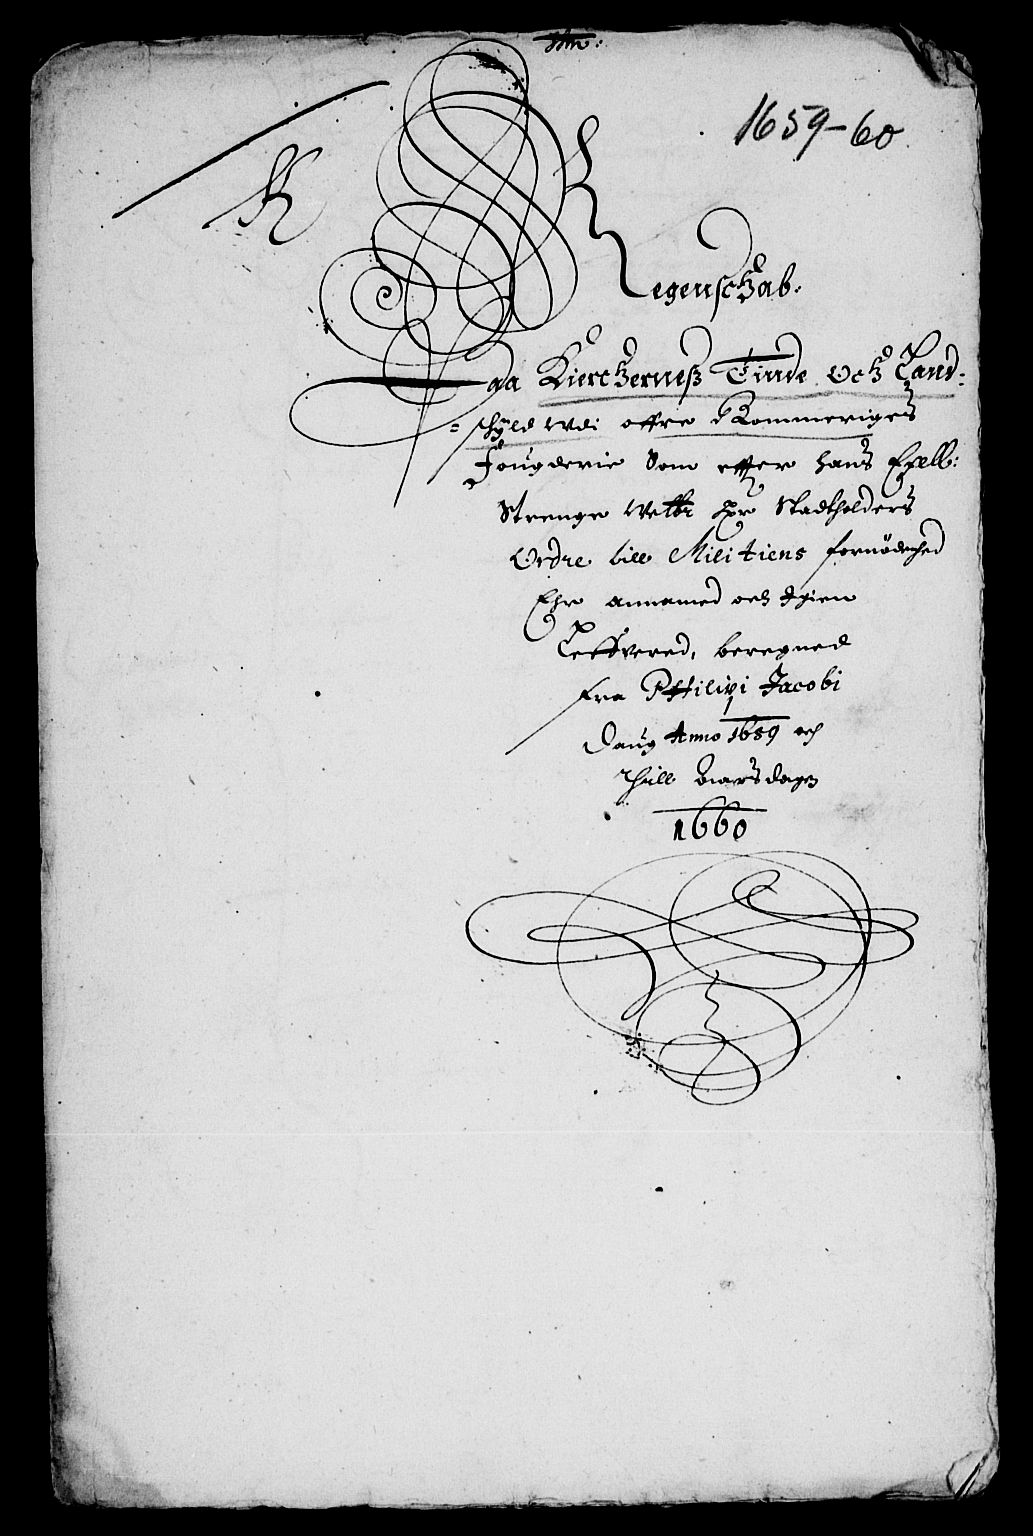 1659-60
Regenschab.
Paa Kierckerneß Tinde Och Land=
=schyld Udi offre Rommeriges
Fougderie Som efter hans Exell:
Strenge Welb: Hr Stadtholders
Ordre till Militiens fornødenhed
Ehr annamed och Igien
Leffvered, beregned
fra Philipi Jacobi
Daug Anno 1659 och
thill Aarsdagen
1660